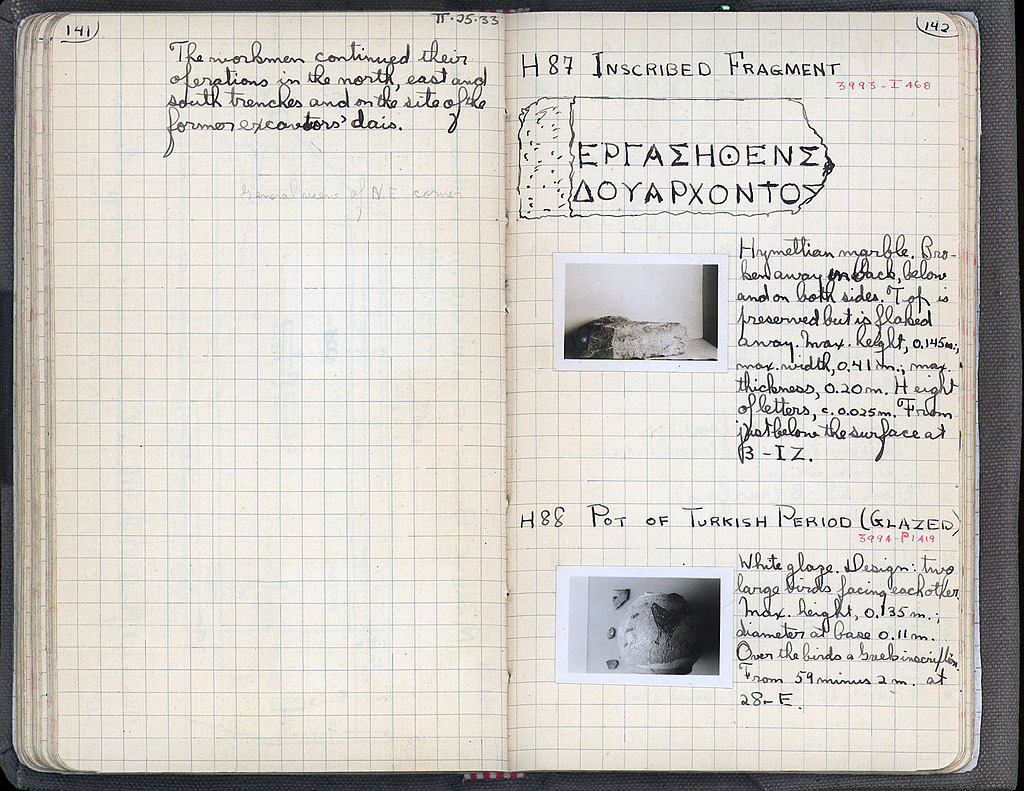 141
II·25·33
The workmen continued their
operations in the north, east and
south trenches and on the site of the
former excavators' dais.
General view of N.E. corner
142
H 87 INSCRIBED FRAGMENT
3993 - I 468
ΕΡΓΑΣΗΘΕΝΣ
ΔΟΥΑΡΧΟΝΤΟΣ
Hymettian marble. Bro-
ken away in back, below
and on both sides. Top is
preserved but is flaked
away. Max. height, 0.145 m.;
max. width, 0.41 m.; max.
thickness, 0.20 m. Height
of letters, c. 0.025 m. From
just below the surface at
3 - ΙΖ.
H 88 POT OF TURKISH PERIOD (GLAZED)
3994 - P1419
White glaze. Design: two
large birds facing each other.
Max. height, 0.135 m.;
diameter at base 0.11 m.
Over the birds a Greek inscription.
From 59 minus 2 m. at
28 - E.